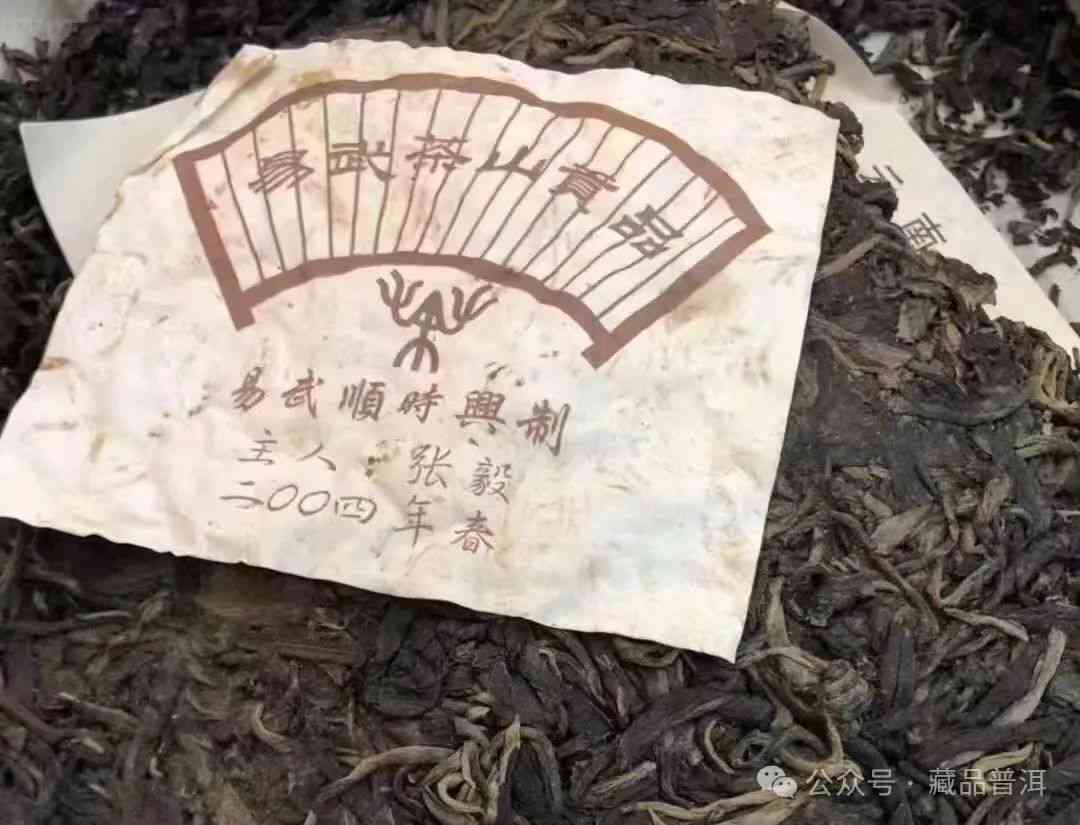 易武茶山貢品
易武順時興制
主人：张毅
二〇〇四年春
云南
公众号·藏品普洱